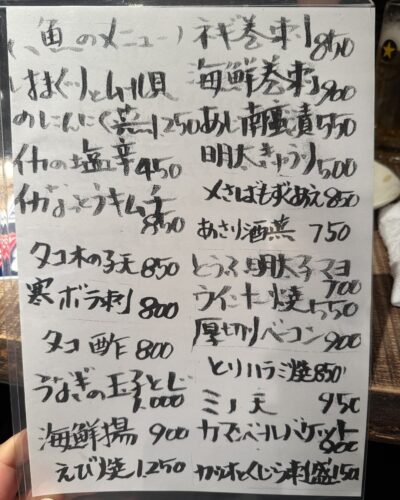 魚のメニュー
はまぐりとムール貝
のにんにく蒸し1250
イカの塩辛 450
イカなっとうキムチ
850
タコ木の子天 850
寒ボラ刺 800
タコ酢 800
うなぎの玉子とじ
1.000
海鮮揚 900
えび焼 1.250
ネギ巻刺 850
海鮮巻刺 900
あじ南蛮漬 550
明太きゅうり 500
〆さばもずあえ 850
あさり酒蒸 750
とうふ明太子マヨ
700
ウインナー焼 550
厚切りベーコン 900
とりハラミ焼 850
ミノ天 950
カマンベールバケット
900
カツオとくじら刺盛